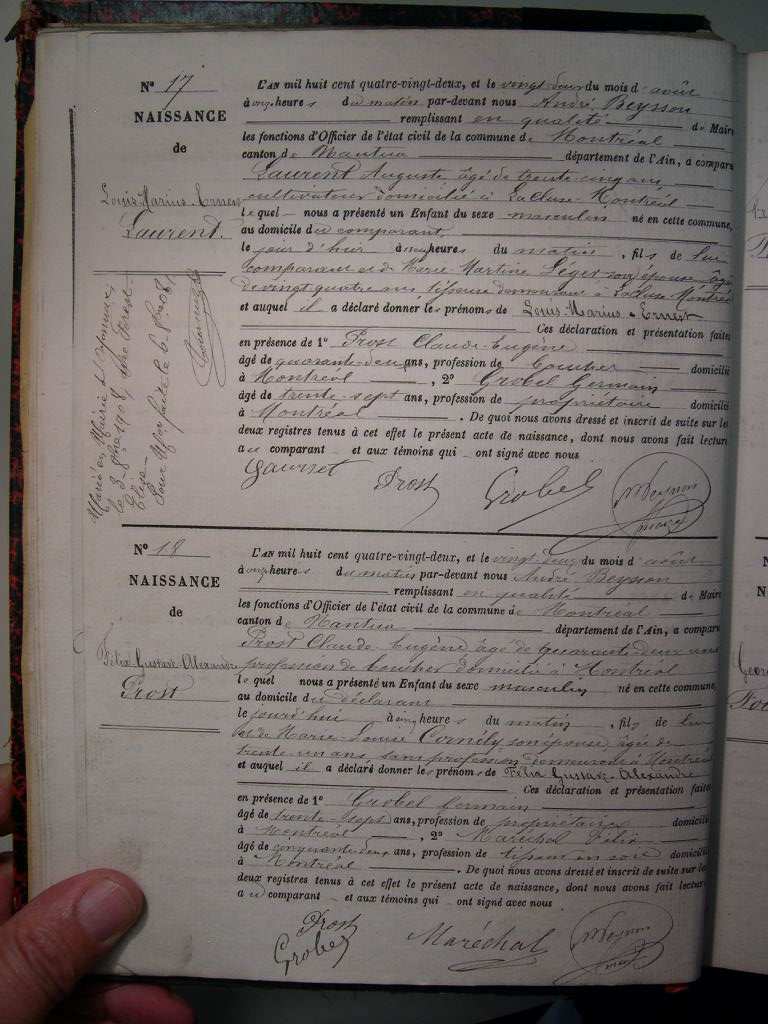 N° 17
NAISSANCE
de
Louis-Marius-Ernest
Laurent
L'AN mil huit cent quatre-vingt-deux, et le vingt-deux du mois d'août
à onze heures du matin par-devant nous André Beysson
remplissant en qualité de Maire
les fonctions d'Officier de l'état civil de la commune de Montréal
canton de Nantua département de l'Ain, a comparu
Laurent Auguste âgé de trente-cinq ans,
cultivateur domicilié à Lacluse-Montréal
lequel nous a présenté un Enfant du sexe masculin né en cette commune,
au domicile du comparant,
le jour d'hui à heures du matin, fils de lui
comparant et de Marie-Martine Léger son épouse âgée
de vingt quatre ans tisseuse demeurant à Lacluse-Montréal
et auquel il a déclaré donner les prénoms de Louis-Marius-Ernest
Ces déclaration et présentation faites
en présence de 1° Prost Claude-Eugène
âgé de quarante-deux ans, profession de boucher domicilié
à Montréal, 2° Grobel Germain
âgé de trente-sept ans, profession de propriétaire domicilié
à Montréal. De quoi nous avons dressé et inscrit de suite sur les
deux registres tenus à cet effet le présent acte de naissance, dont nous avons fait lecture
au comparant et aux témoins qui ont signé avec nous
Prost Grobel Beysson
Marié à
le 3 8bre 1908, avec
N° 18
NAISSANCE
de
Félix-Gustave-Alexandre
Prost
L'AN mil huit cent quatre-vingt-deux, et le vingt-deux du mois d'août
à onze heures du matin par-devant nous André Beysson
remplissant en qualité de Maire
les fonctions d'Officier de l'état civil de la commune de Montréal
canton de Nantua département de l'Ain, a comparu
Prost Claude-Eugène âgé de quarante deux ans
profession de boucher domicilié à Montréal
lequel nous a présenté un Enfant du sexe masculin né en cette commune,
au domicile du déclarant
le jourd'hui à cinq heures du matin, fils de lui
et de Marie-Louise Cornély son épouse, âgée de
trente-un ans, sans profession demeurant à Montréal
et auquel il a déclaré donner les prénoms de Félix Gustave-Alexandre
Ces déclaration et présentation faites
en présence de 1° Grobel Germain
âgé de trente-sept ans, profession de propriétaire domicilié
à Montréal, 2° Maréchal Félix
âgé de cinquante-deux ans, profession de tisseur en soie domicilié
à Montréal. De quoi nous avons dressé et inscrit de suite sur les
deux registres tenus à cet effet le présent acte de naissance, dont nous avons fait lecture
au comparant et aux témoins qui ont signé avec nous
Prost
Grobel Maréchal Beysson